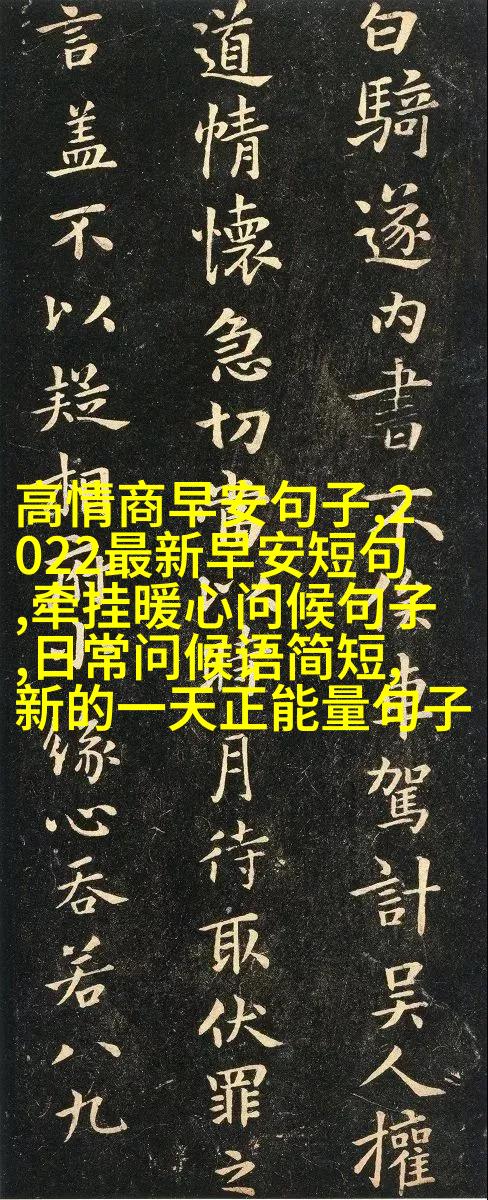 白騎遂内書不俟車駕計吴人權
道情懷急切當以月待取伏罪之
言盖不以疑相緣心吞若八九
高情商早安句子,2
022最新早安短句
,牵挂暖心问候句子
,日常问候语简短,
新的一天正能量句子